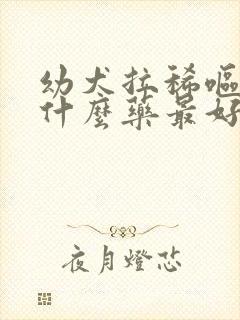 幼犬拉稀嘔
什麼藥最好
夜月燈芯